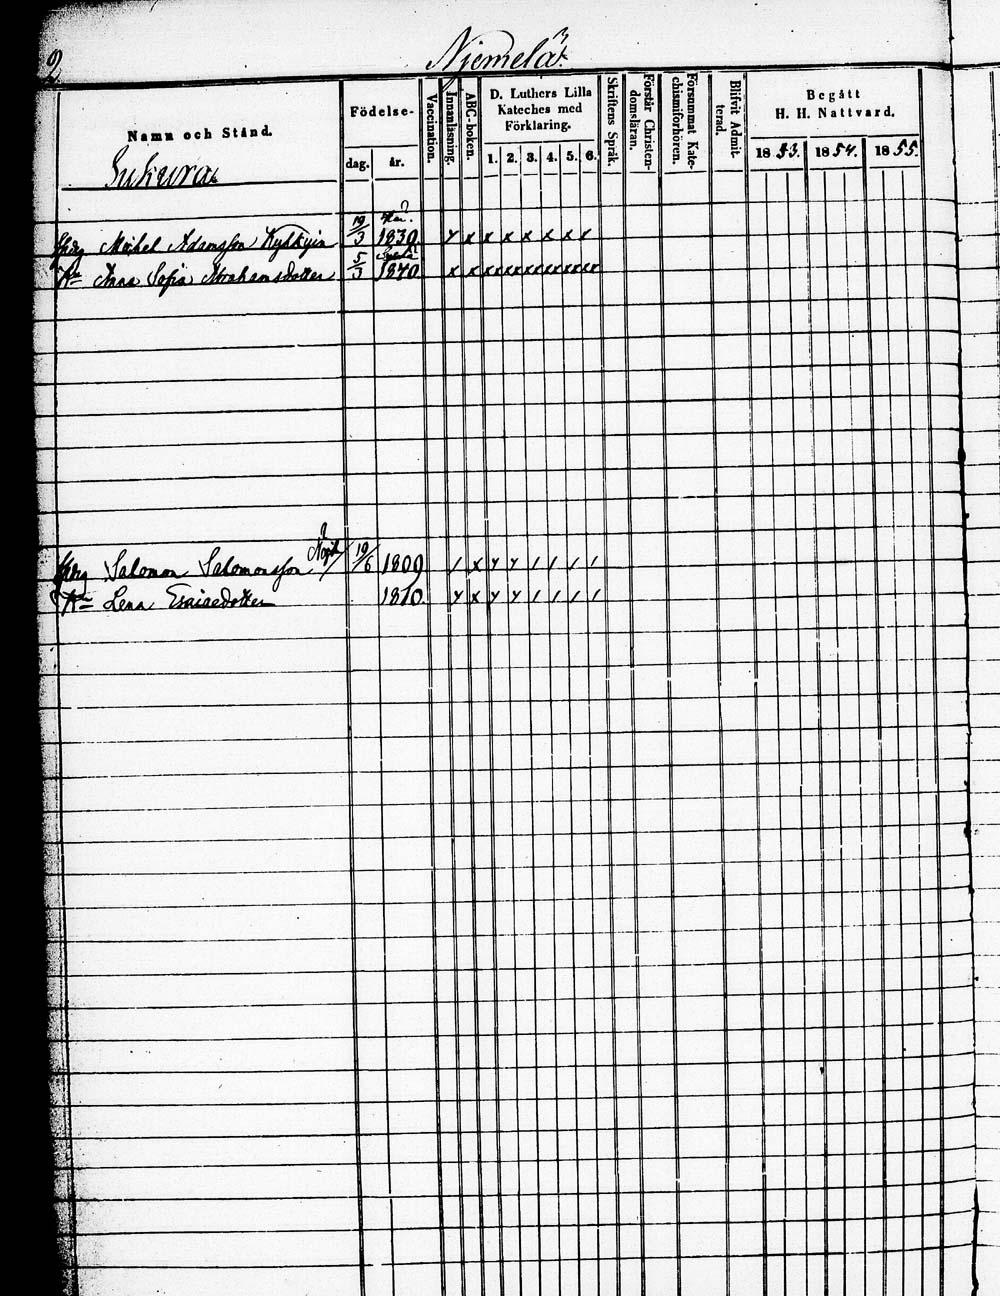 2 Njemelä
Namn och Stånd.
Födelse-
dag. år.
Vaccination.
Innanläsning.
ABC-boken.
D. Luthers Lilla
Kateches med
Förklaring.
1. 2. 3. 4. 5. 6.
Skriftens Språk.
Förstår Christen-
domsläran.
Försummat Kate-
chismiförhören.
Blifvit Admit-
terad.
Begått
H. H. Nattvard.
1853. 1854. 1855.
19/3 1839. Michel Adamsson
5/3 1840 Anna Sofia Abrahamsdotter
Salomon Salomonsson 19/6 1809
Lena Esaiaedotter 1810.